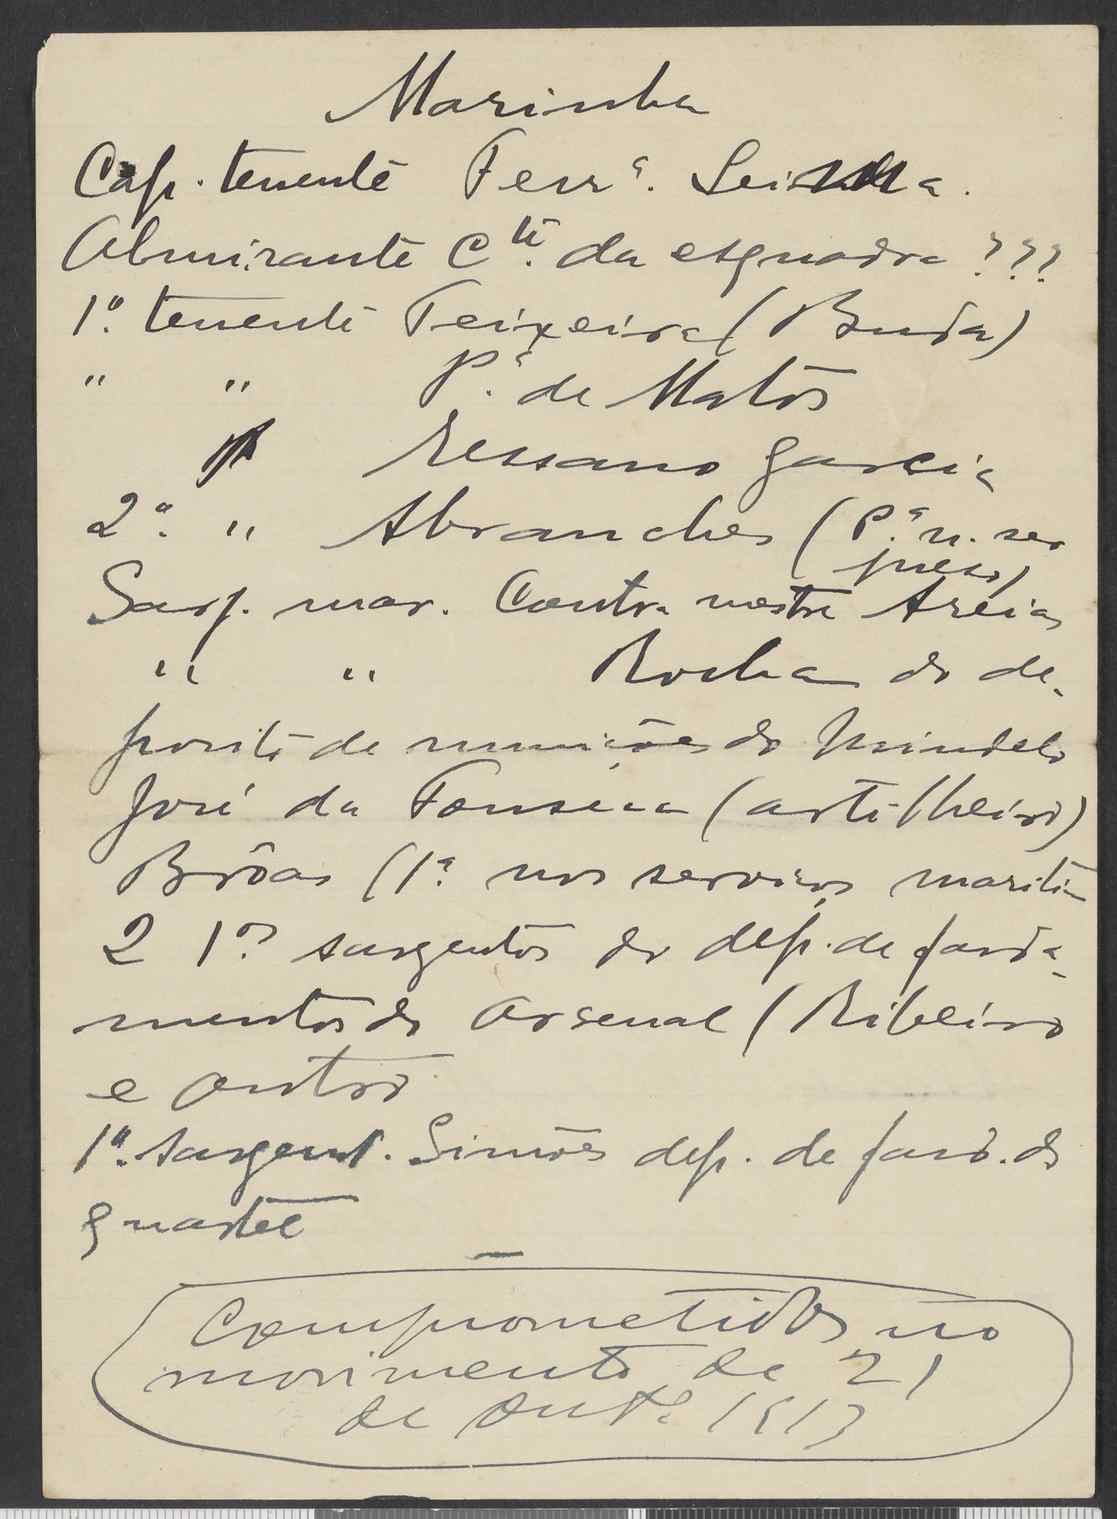 Marinha
Cap. tenente Ferrª.
Almirante Cte. da esquadra ???
1º. tenente Teixeira (Buda)
" " Pª. de Matos
Ressano Garcia
2º. " Abranches (Pª. n. ser
preso)
Sarg. mar. Contra mestre Areias
" " Rocha do de-
posito de munições do Mindelo
José da Fonseca (artilheiro)
Brôas (1ª. nos serviços
2 1os. sargentos do dep. de farda-
mentos do Arsenal (Ribeiro
e outro
1º. sargent. Simões dep. de fard. do
quartel
Comprometidos no
movimento de 21
de Outº. 1913